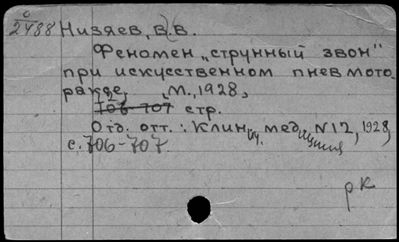 с
2488 Низяев, В.В.
Феномен „струнный звон"
при искусственном пневмото-
раксе, М., 1928,
706-707 стр.
Отд. отт.: Клинич. медицина, N12, 1928,
с. 706-707.
рк